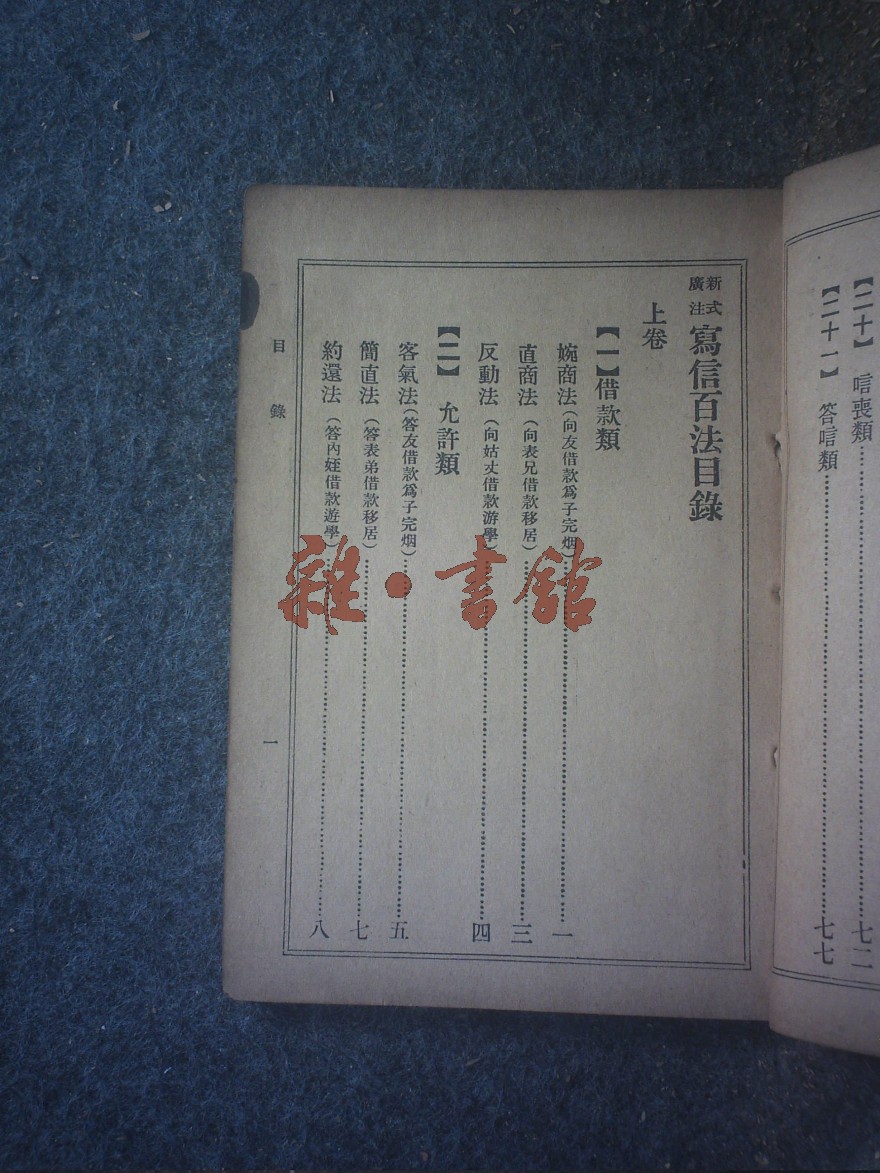 【二十】 唁喪類……七二
【二十一】 答唁類……七七
新式廣注 寫信百法目錄
上卷
【一】借款類
婉商法(向友借款爲子完烟)……一
直商法(向表兄借款移居)……三
反動法(向姑丈借款游學)……四
【二】 允許類
客氣法(答友借款爲子完烟)……五
簡直法(答表弟借款移居)……七
約還法(答內姪借款遊學)……八
目錄 一
雜·書館